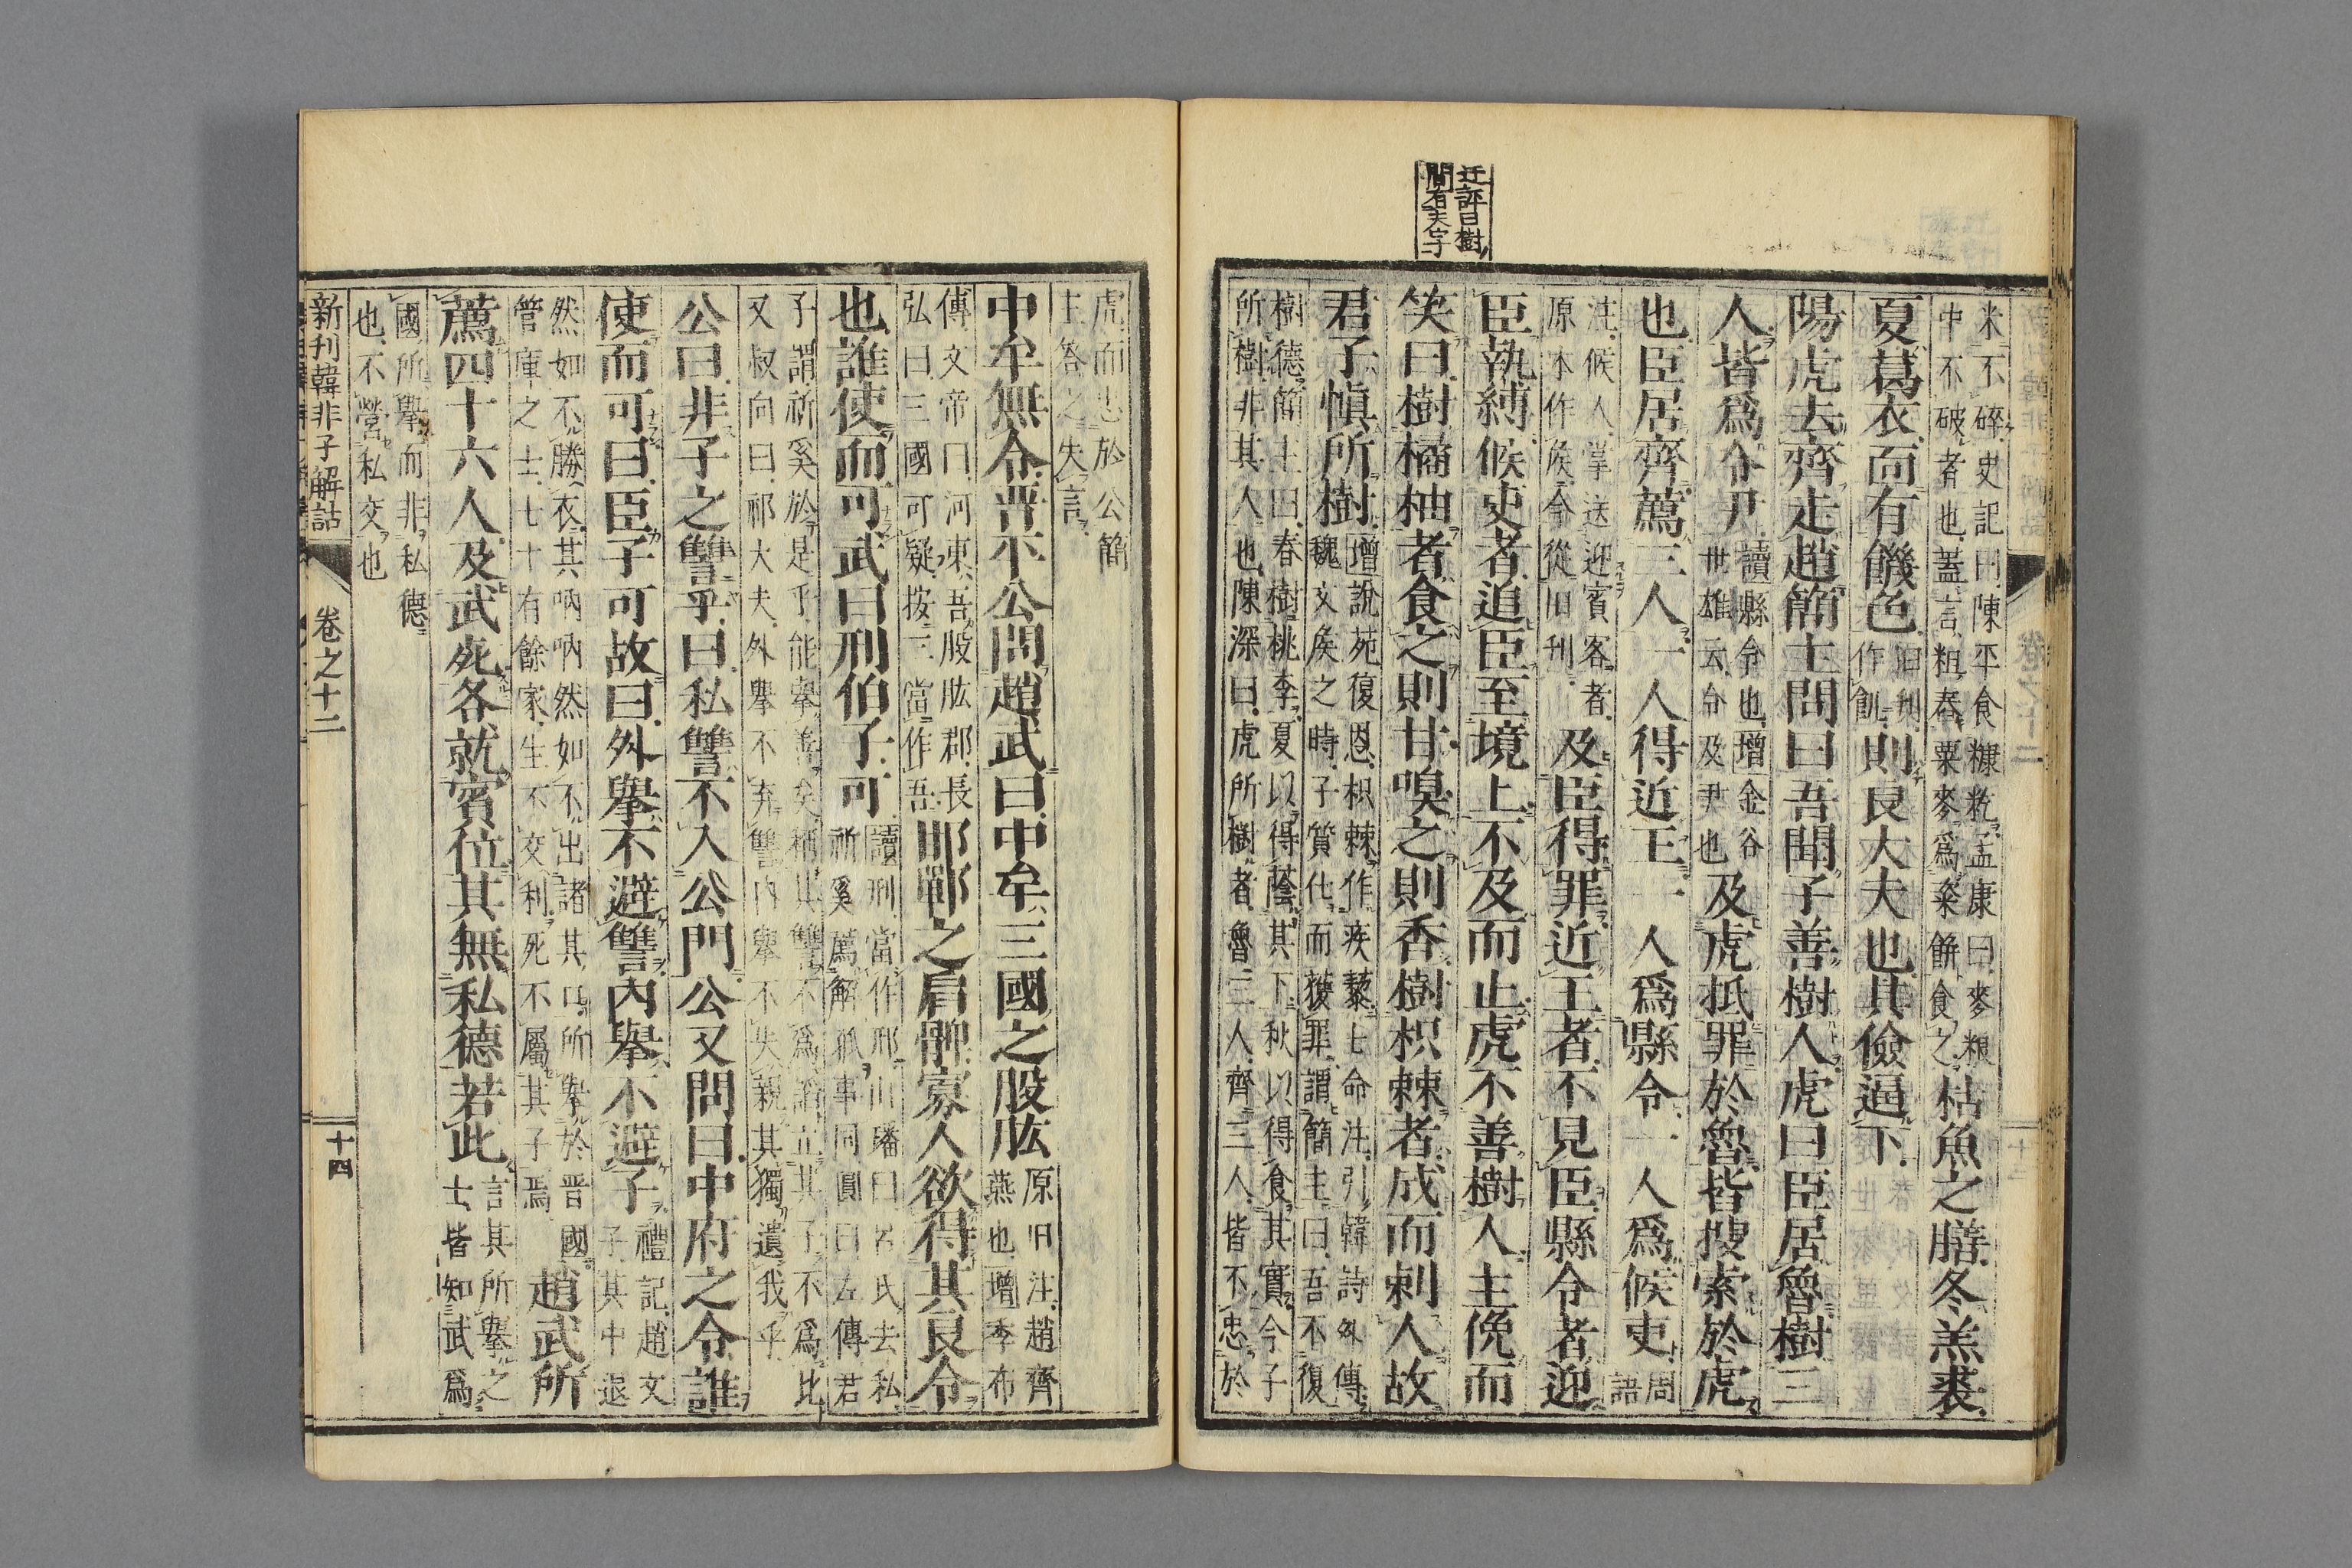 迂評曰樹
間有夫字
米不碎史記曰陳平食糠籺孟康曰麥糠
中不破者也蓋言粗舂粟麥爲粢餅食之枯魚之膳冬羔裘
夏葛衣面有饑色旧刊作飢則良大夫也其儉逼下
陽虎去齊走趙簡主問曰吾聞子善樹人虎曰臣居魯樹三
人皆爲令尹讀縣令也增金谷世雄云令及尹也及虎抵罪於魯皆搜索於虎
也臣居齊薦三人一人得近王一人爲縣令一人爲候吏周語
注候人掌送迎賓客者原本作侯今從旧刊及臣得罪近王者不見臣縣令者迎
臣執縛候吏者追臣至境上不及而止虎不善樹人主俛而
笑曰樹橘柚者食之則甘嗅之則香樹枳棘者成而刺人故
君子慎所樹增說苑復恩枳棘作疾藜七命注引韓詩外傳
魏文侯之時子質仕而獲罪謂簡主曰吾不復
樹德簡主曰春樹桃李夏以得蔭其下秋以得食其實今子
所樹非其人也陳深曰虎所樹者魯三人齊三人皆不忠於
虎而忠於公簡
主答之失言
中牟無令晋平公問趙武曰中牟三國之股肱原旧注趙齊燕也增季布
傳文帝曰河東吾股肱郡長
弘曰三國可疑按三當作吾邯鄲之肩髀寡人欲得其良令
也誰使而可武曰刑伯子可讀刑當作邢山璠曰呂氏去私
祈奚薦解狐事同圓曰左傳君
子謂祈奚於是乎能擧善矣稱其讐不爲諂立其子不爲比
又叔向曰祁大夫外擧不弃讐内擧不失親其獨遺我乎
公曰非子之讐乎曰私讐不入公門公又問曰中府之令誰
使而可曰臣子可故曰外擧不避讐內擧不避子禮記趙文子其中退
然如不勝衣其吶吶然如不出諸其口所擧於晋國
管庫之士七十有餘家生不交利死不屬其子焉趙武所
薦四十六人及武死各就賓位其無私德若此言其所擧之
士皆知武爲
國所擧而非私德
也不營私交也
新刊韓非子解詁 卷之十二 十四